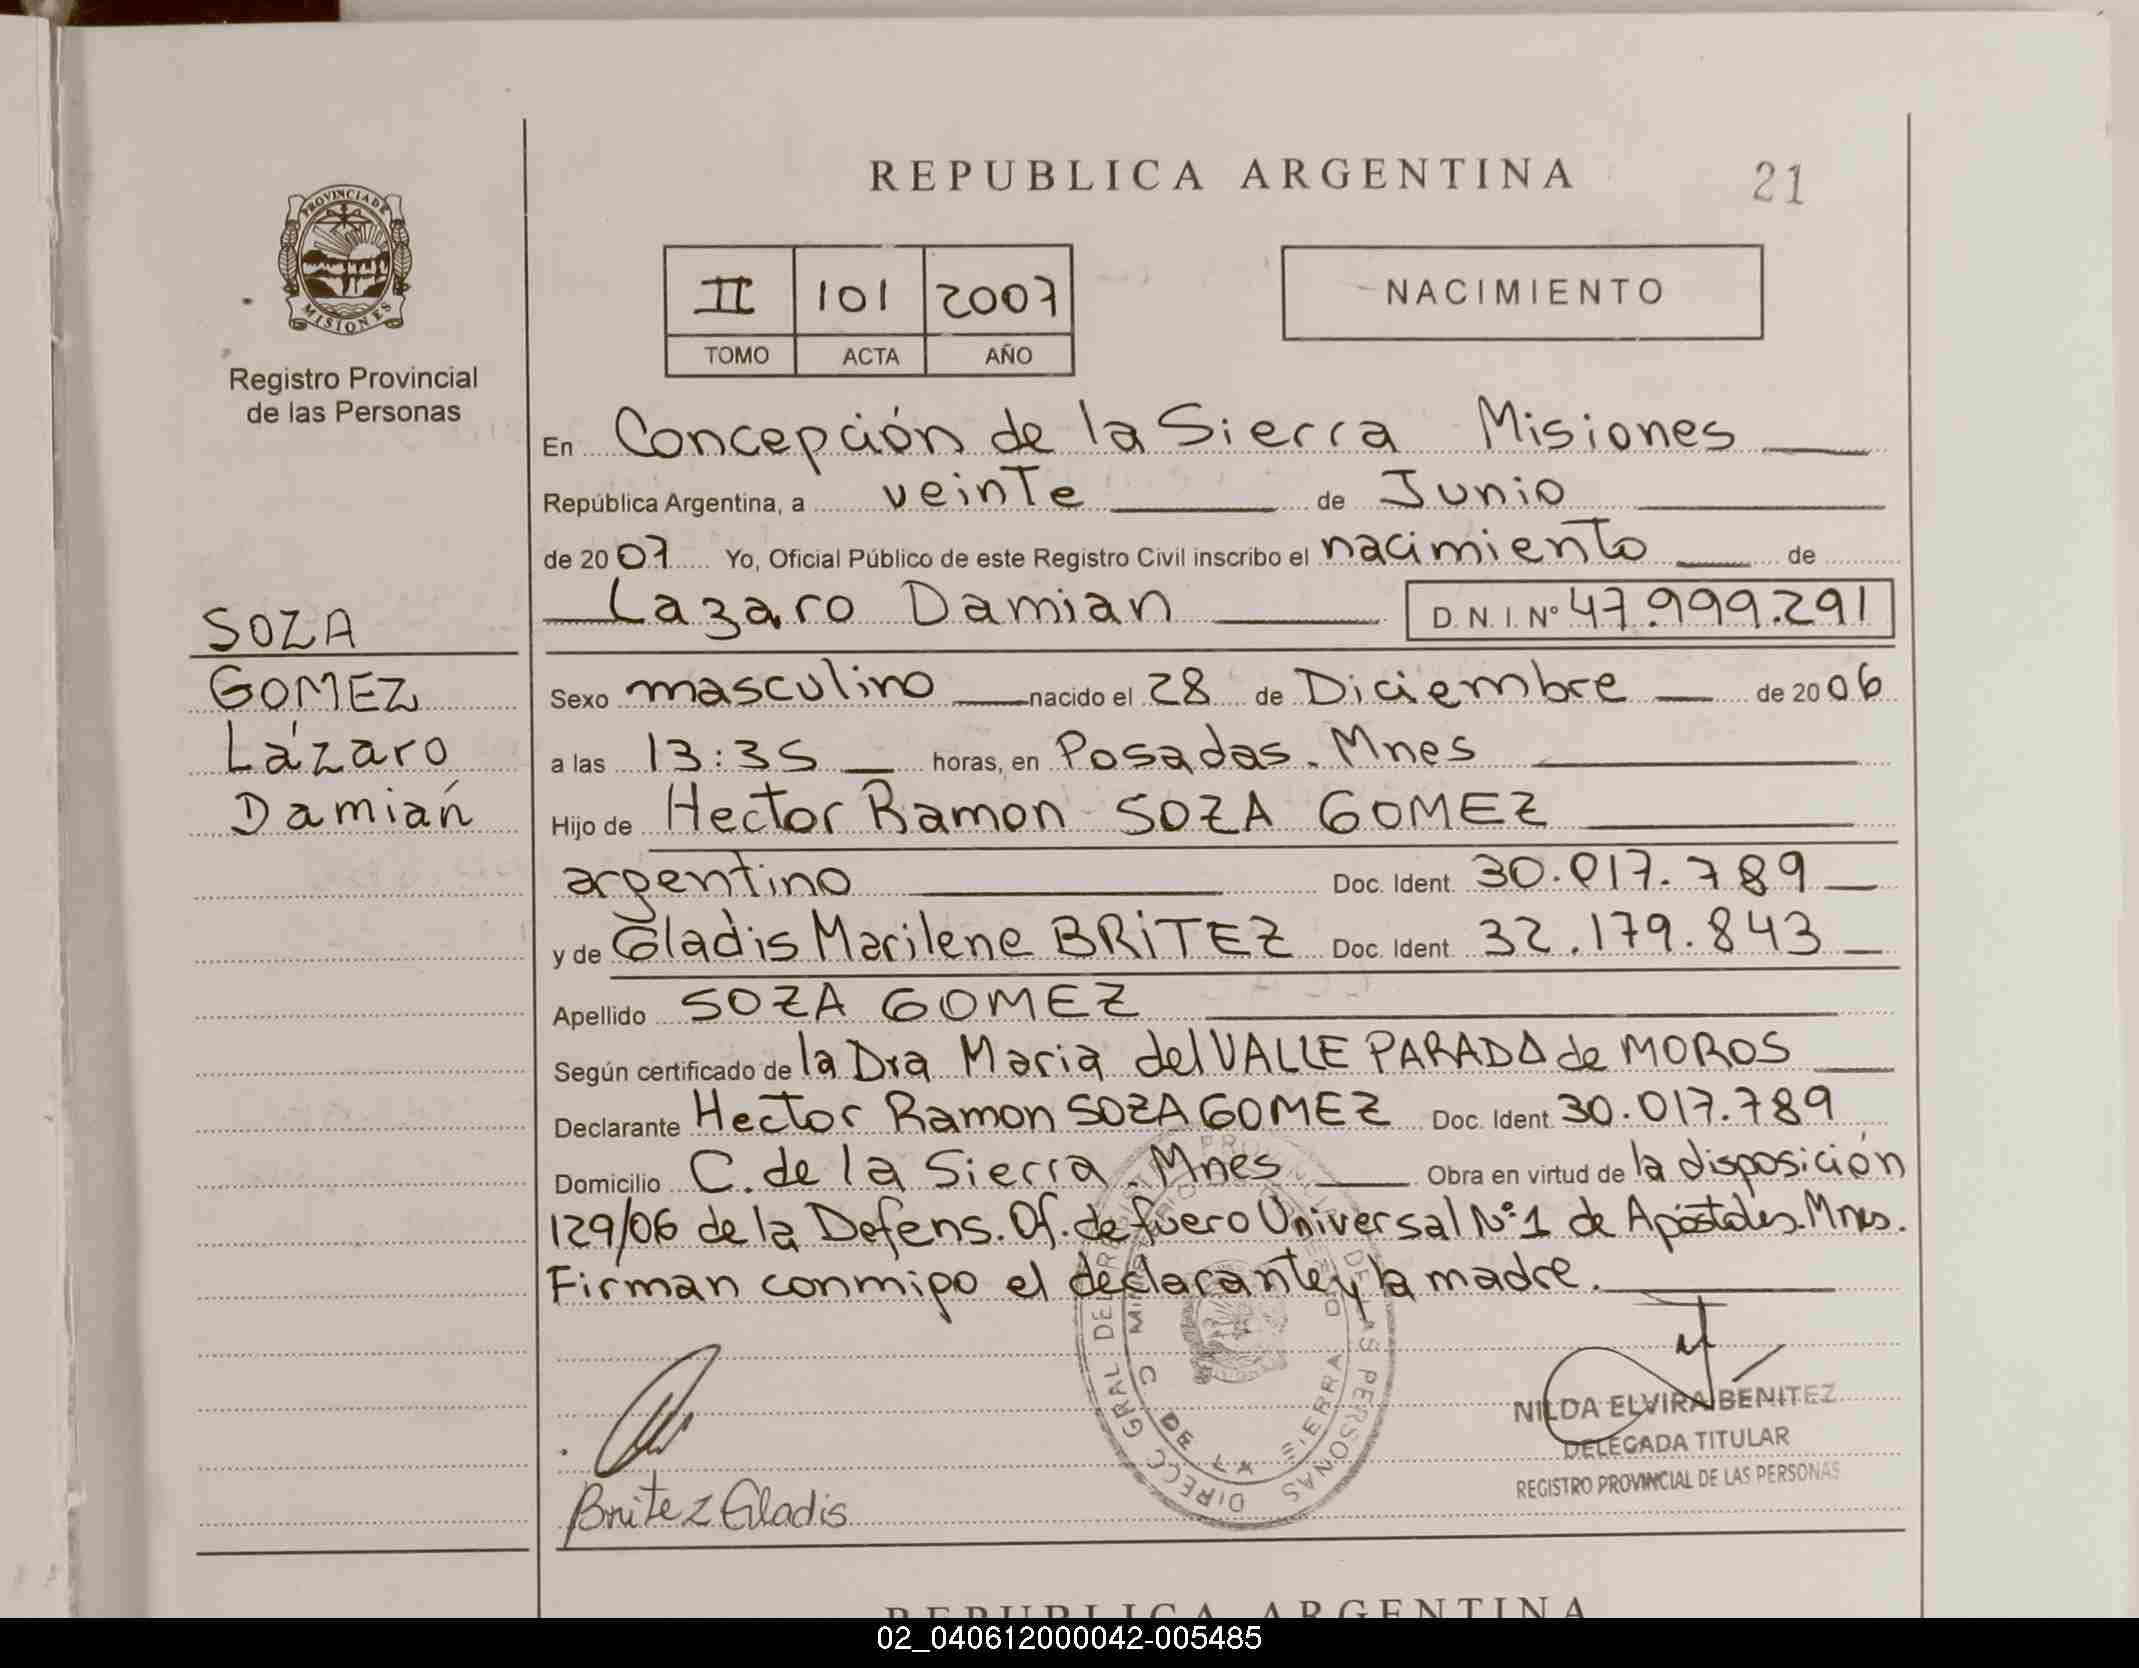 REPUBLICA ARGENTINA
21
PROVINCIA DE
MISIONES
Registro Provincial
de las Personas
II 101 2007
TOMO ACTA AÑO
NACIMIENTO
En Concepción de la Sierra Misiones
República Argentina, a veinte de Junio
de 2007 Yo, Oficial Público de este Registro Civil inscribo el nacimiento de
Lazaro Damian D. N. I. Nº 47.999.291
SOZA
GOMEZ
Lázaro
Damián
Sexo masculino nacido el 28 de Diciembre de 2006
a las 13:35 horas, en Posadas. Mnes
Hijo de Hector Ramon SOZA GOMEZ
argentino Doc. Ident. 30.017.789
y de Gladis Marilene BRITEZ Doc. Ident. 32.179.843
Apellido SOZA GOMEZ
Según certificado de la Dra Maria del VALLE PARADA de MOROS
Declarante Hector Ramon SOZA GOMEZ Doc. Ident. 30.017.789
Domicilio C. de la Sierra. Mnes Obra en virtud de la disposición
129/06 de la Defens. Of. de fuero Universal Nº 1 de Apóstoles. Mnes.
Firman conmigo el declarante y la madre.
DIRECC GRAL DE REGISTRO PROVINCIAL DE LAS PERSONAS
MINISTERIO DE GOBIERNO
C DE LA SIERRA
NILDA ELVIRA BENITEZ
DELEGADA TITULAR
REGISTRO PROVINCIAL DE LAS PERSONAS
Britez Gladis
REPUBLICA ARGENTINA
02_040612000042-005485